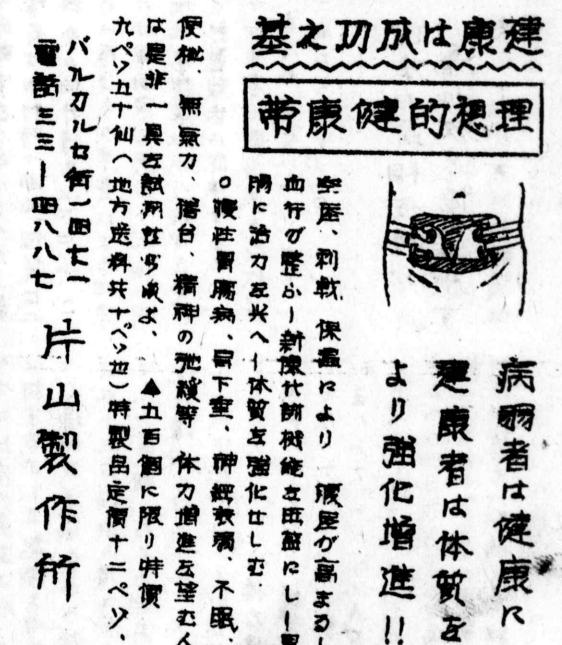 建康は成功之基
理想的健康帯
病弱者は健康に
建康者は体質を
より強化増進!!
空屋、刺戟、保温により 腹圧が高まるし
血行が整ふ—新陳代謝機能を旺盛にし—胃
腸に活力を与へ—体質を強化せしむ。
○慢性胃腸病、胃下垂、神経衰弱、不眠、
便秘、無気力、精神の弛緩等 体力増進を望む人
は是非一具を試用せられよ、▲五百個に限り特價
九ペソ五十仙(地方送料共十ペソ也)特製品定價十二ペソ、
バルカルセ街一四七一
電話三三—四八八七
片山製作所